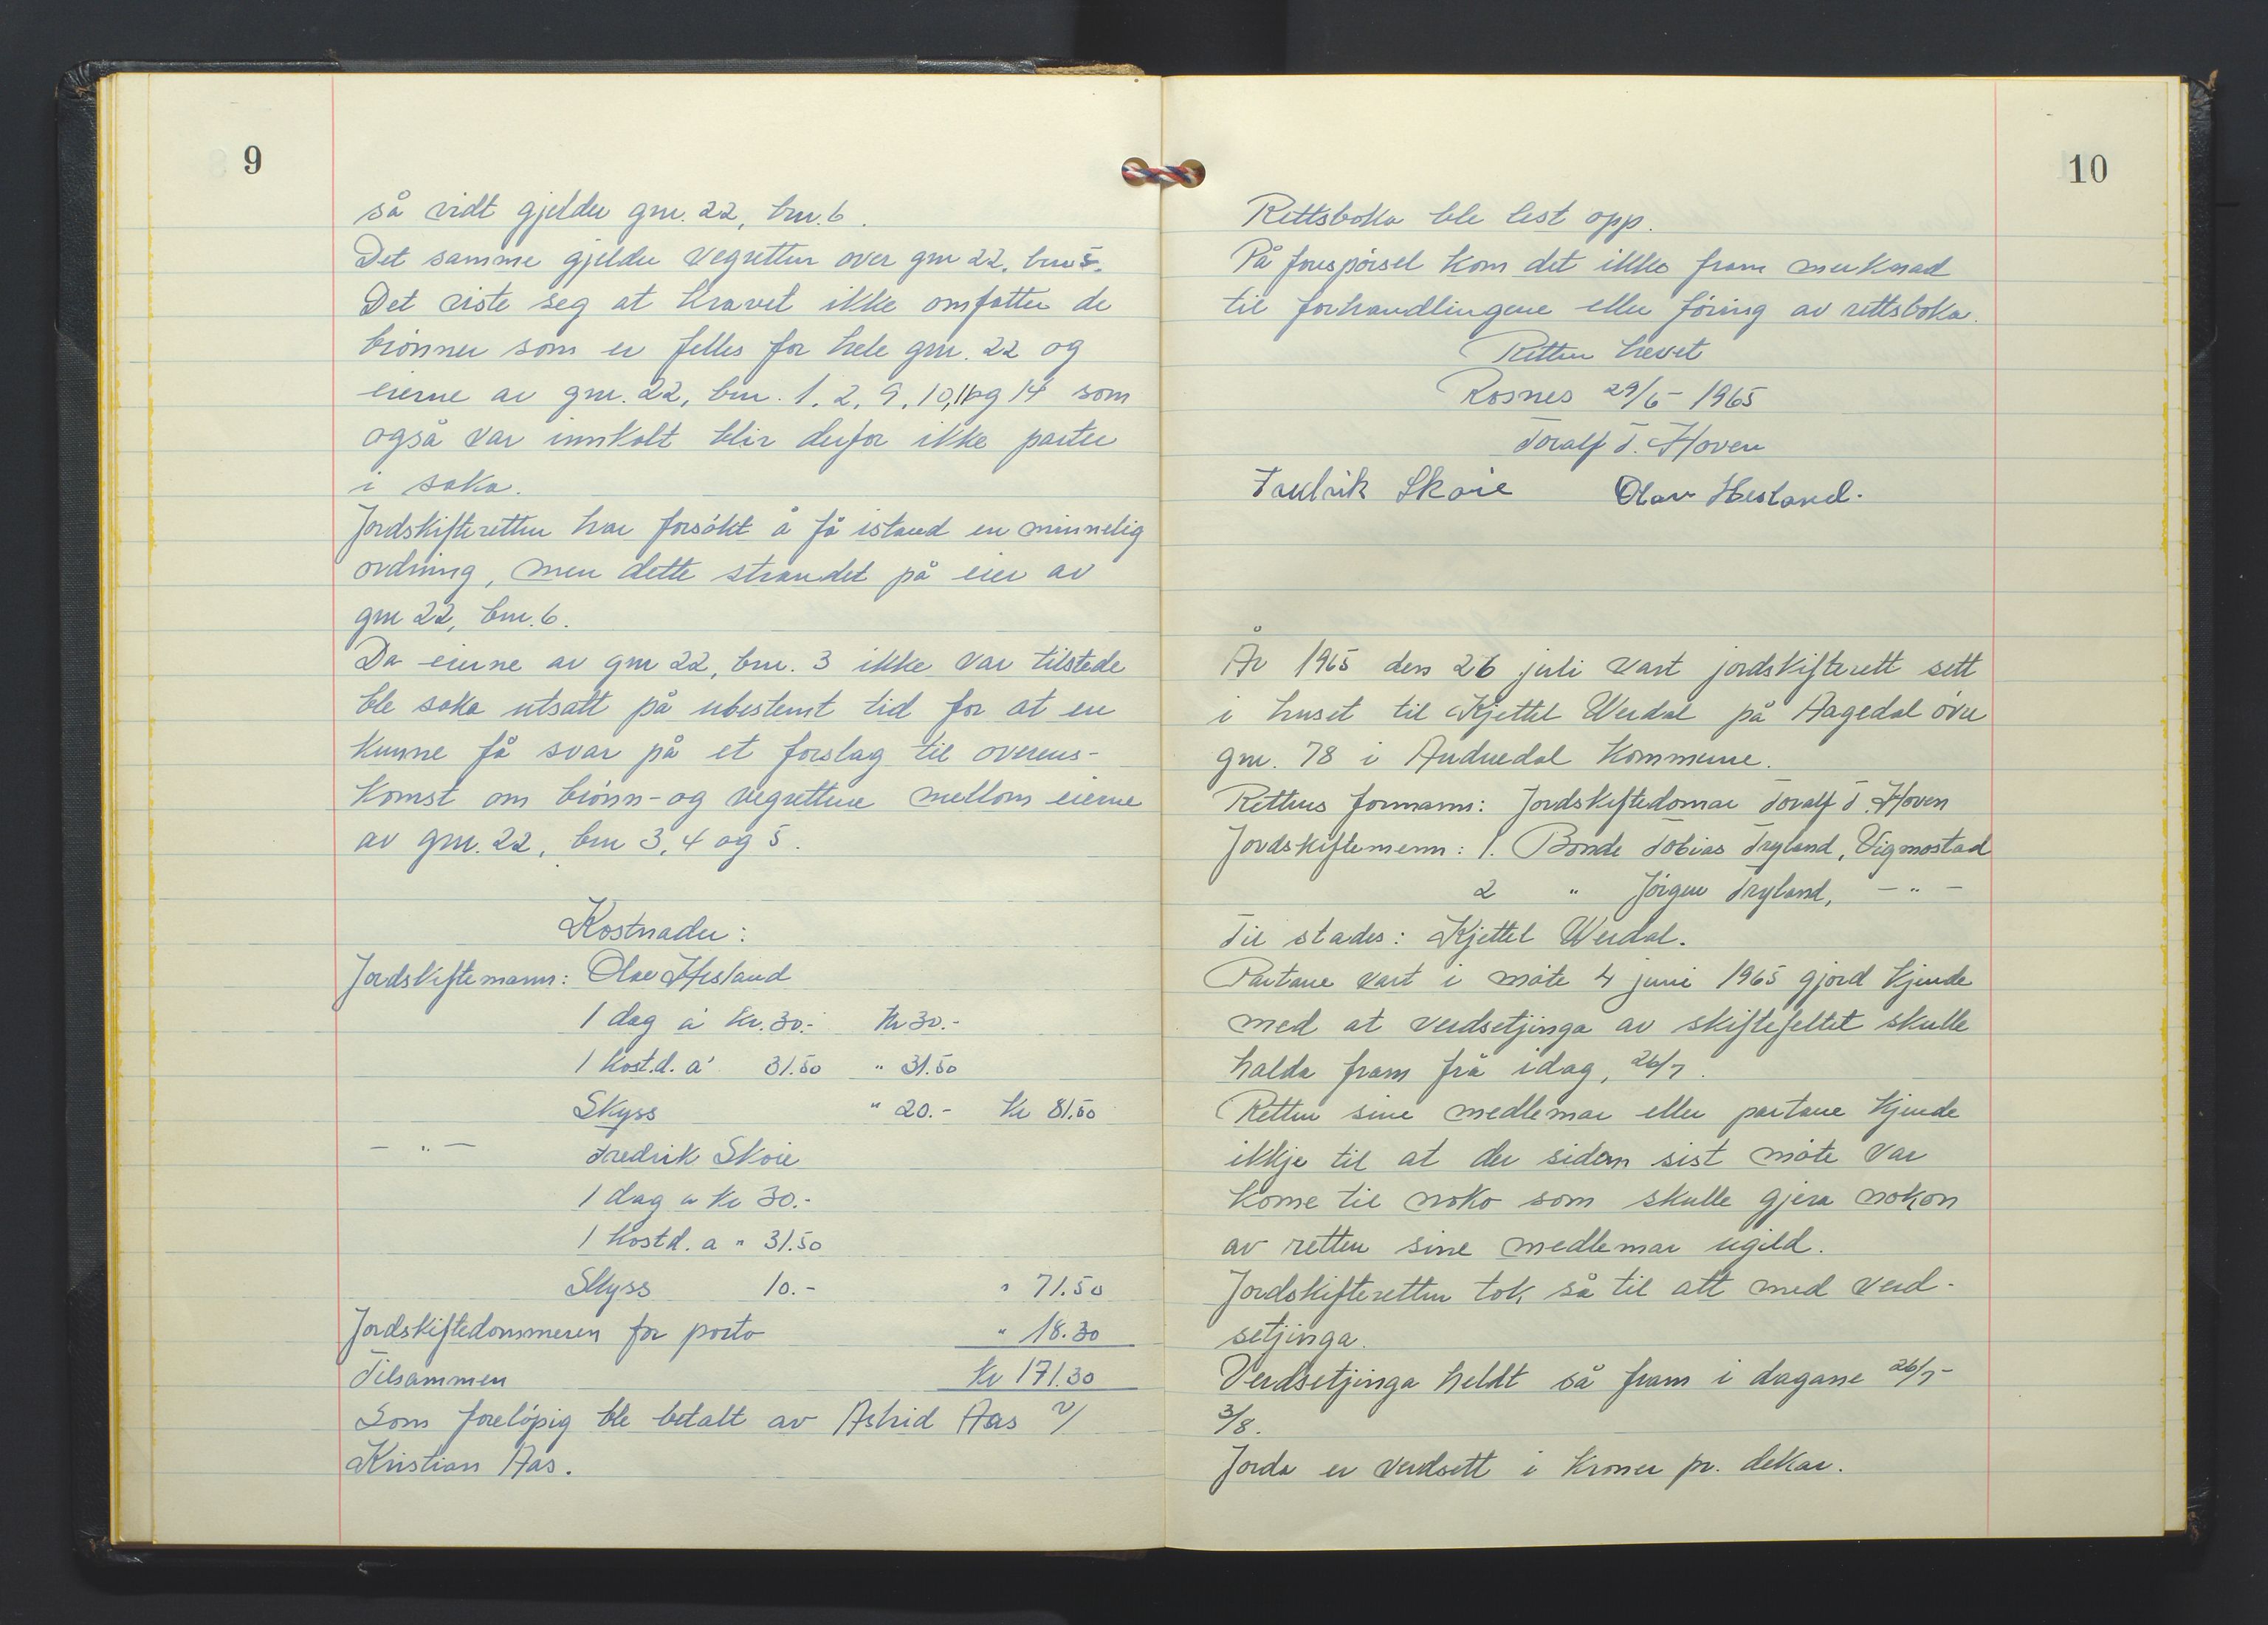 9
så vidt gjelder gnr. 22, bnr. 6.
Det samme gjelder vegretten over gnr 22, bnr 5.
Det viste seg at kravet ikke omfatter de
brönner som er felles for hele gnr. 22 og
eierne av gnr. 22, bnr. 1, 2, 9, 10, 11 og 14 som
også var innkalt blir derfor ikke parter
i saka.
Jordskifteretten har forsökt å få istand en minnelig
ordning, men dette strandet på eier av
gnr 22, bnr. 6.
Da eierne av gnr 22, bnr. 3 ikke var tilstede
ble saka utsatt på ubestemt tid for at en
kunne få svar på et forslag til overens-
komst om brönn- og vegrettene mellom eierne
av gnr. 22, bnr 3, 4 og 5.
Kostnader:
Jordskiftemann: Olav Hesland
1 dag à kr. 30.- Kr 30.-
1 kost.d. a' 31.50 " 31.50
Skyss " 20.- Kr 81.50
- " - Fredrik Skoie
1 dag a kr 30.-
1 kostd. a " 31.50
Skyss 10.- " 71.50
Jordskiftedommeren for porto " 18.30
Tilsammen Kr 171.30
Som forelöpig ble betalt av Astrid Aas v/
Kristian Aas.
10
Rettsboka ble lest opp.
På forespörsel kom det ikke fram merknad
til forhandlingene eller föring av rettsboka.
Retten hevet
Rosnes 29/6- 1965
Toralf T. Hoven
Fredrik Skoie Olav Hesland.
År 1965 den 26 juli vart jordskifterett sett
i huset til Kjettel Werdal på Aagedal övre
gnr. 78 i Audnedal kommune.
Rettens formann: Jordskiftedomar Toralf T. Hoven
Jordskiftemenn: 1. Bonde Tobias Tryland, Vigmostad
2 " Jörgen Tryland, - " -
Til stades: Kjettel Werdal.
Partane vart i möte 4 juni 1965 gjord kjende
med at verdsetjinga av skiftefeltet skulle
halda fram frå idag, 26/7.
Retten sine medlemar eller partane kjende
ikkje til at der sidan sist möte var
kome til noko som skulle gjera nokon
av retten sine medlemar ugild.
Jordskifteretten tok så til att med verd-
setjinga.
Verdsetjinga heldt så fram i dagane 26/7-
3/8.
Jorda er verdsett i kroner pr. dekar.